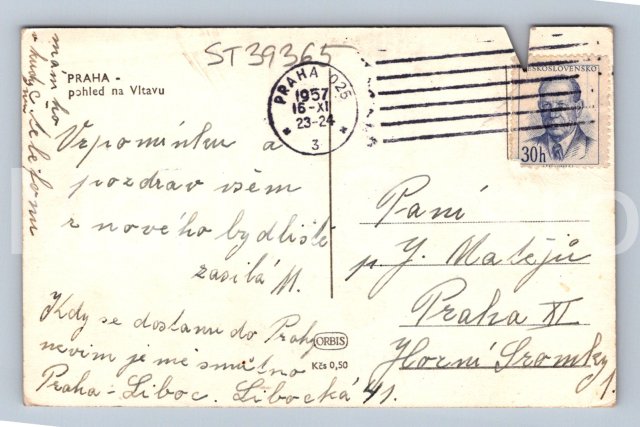 ST39365
PRAHA -
pohled na Vltavu
Vzpomínku a
pozdrav všem
z nového bydliště
zasílá M.
Kdy se dostanu do Prahy
nevím je mě smutno
Praha - Liboc. Libocká 41.
mám ho
v budyč
č. telefonu
ORBIS
Kčs 0,50
PRAHA 025
1957
16-XI
23-24
3
ČESKOSLOVENSKO
30h
Paní
p. J. Matějů
Praha XI
Horní Stromky
1.